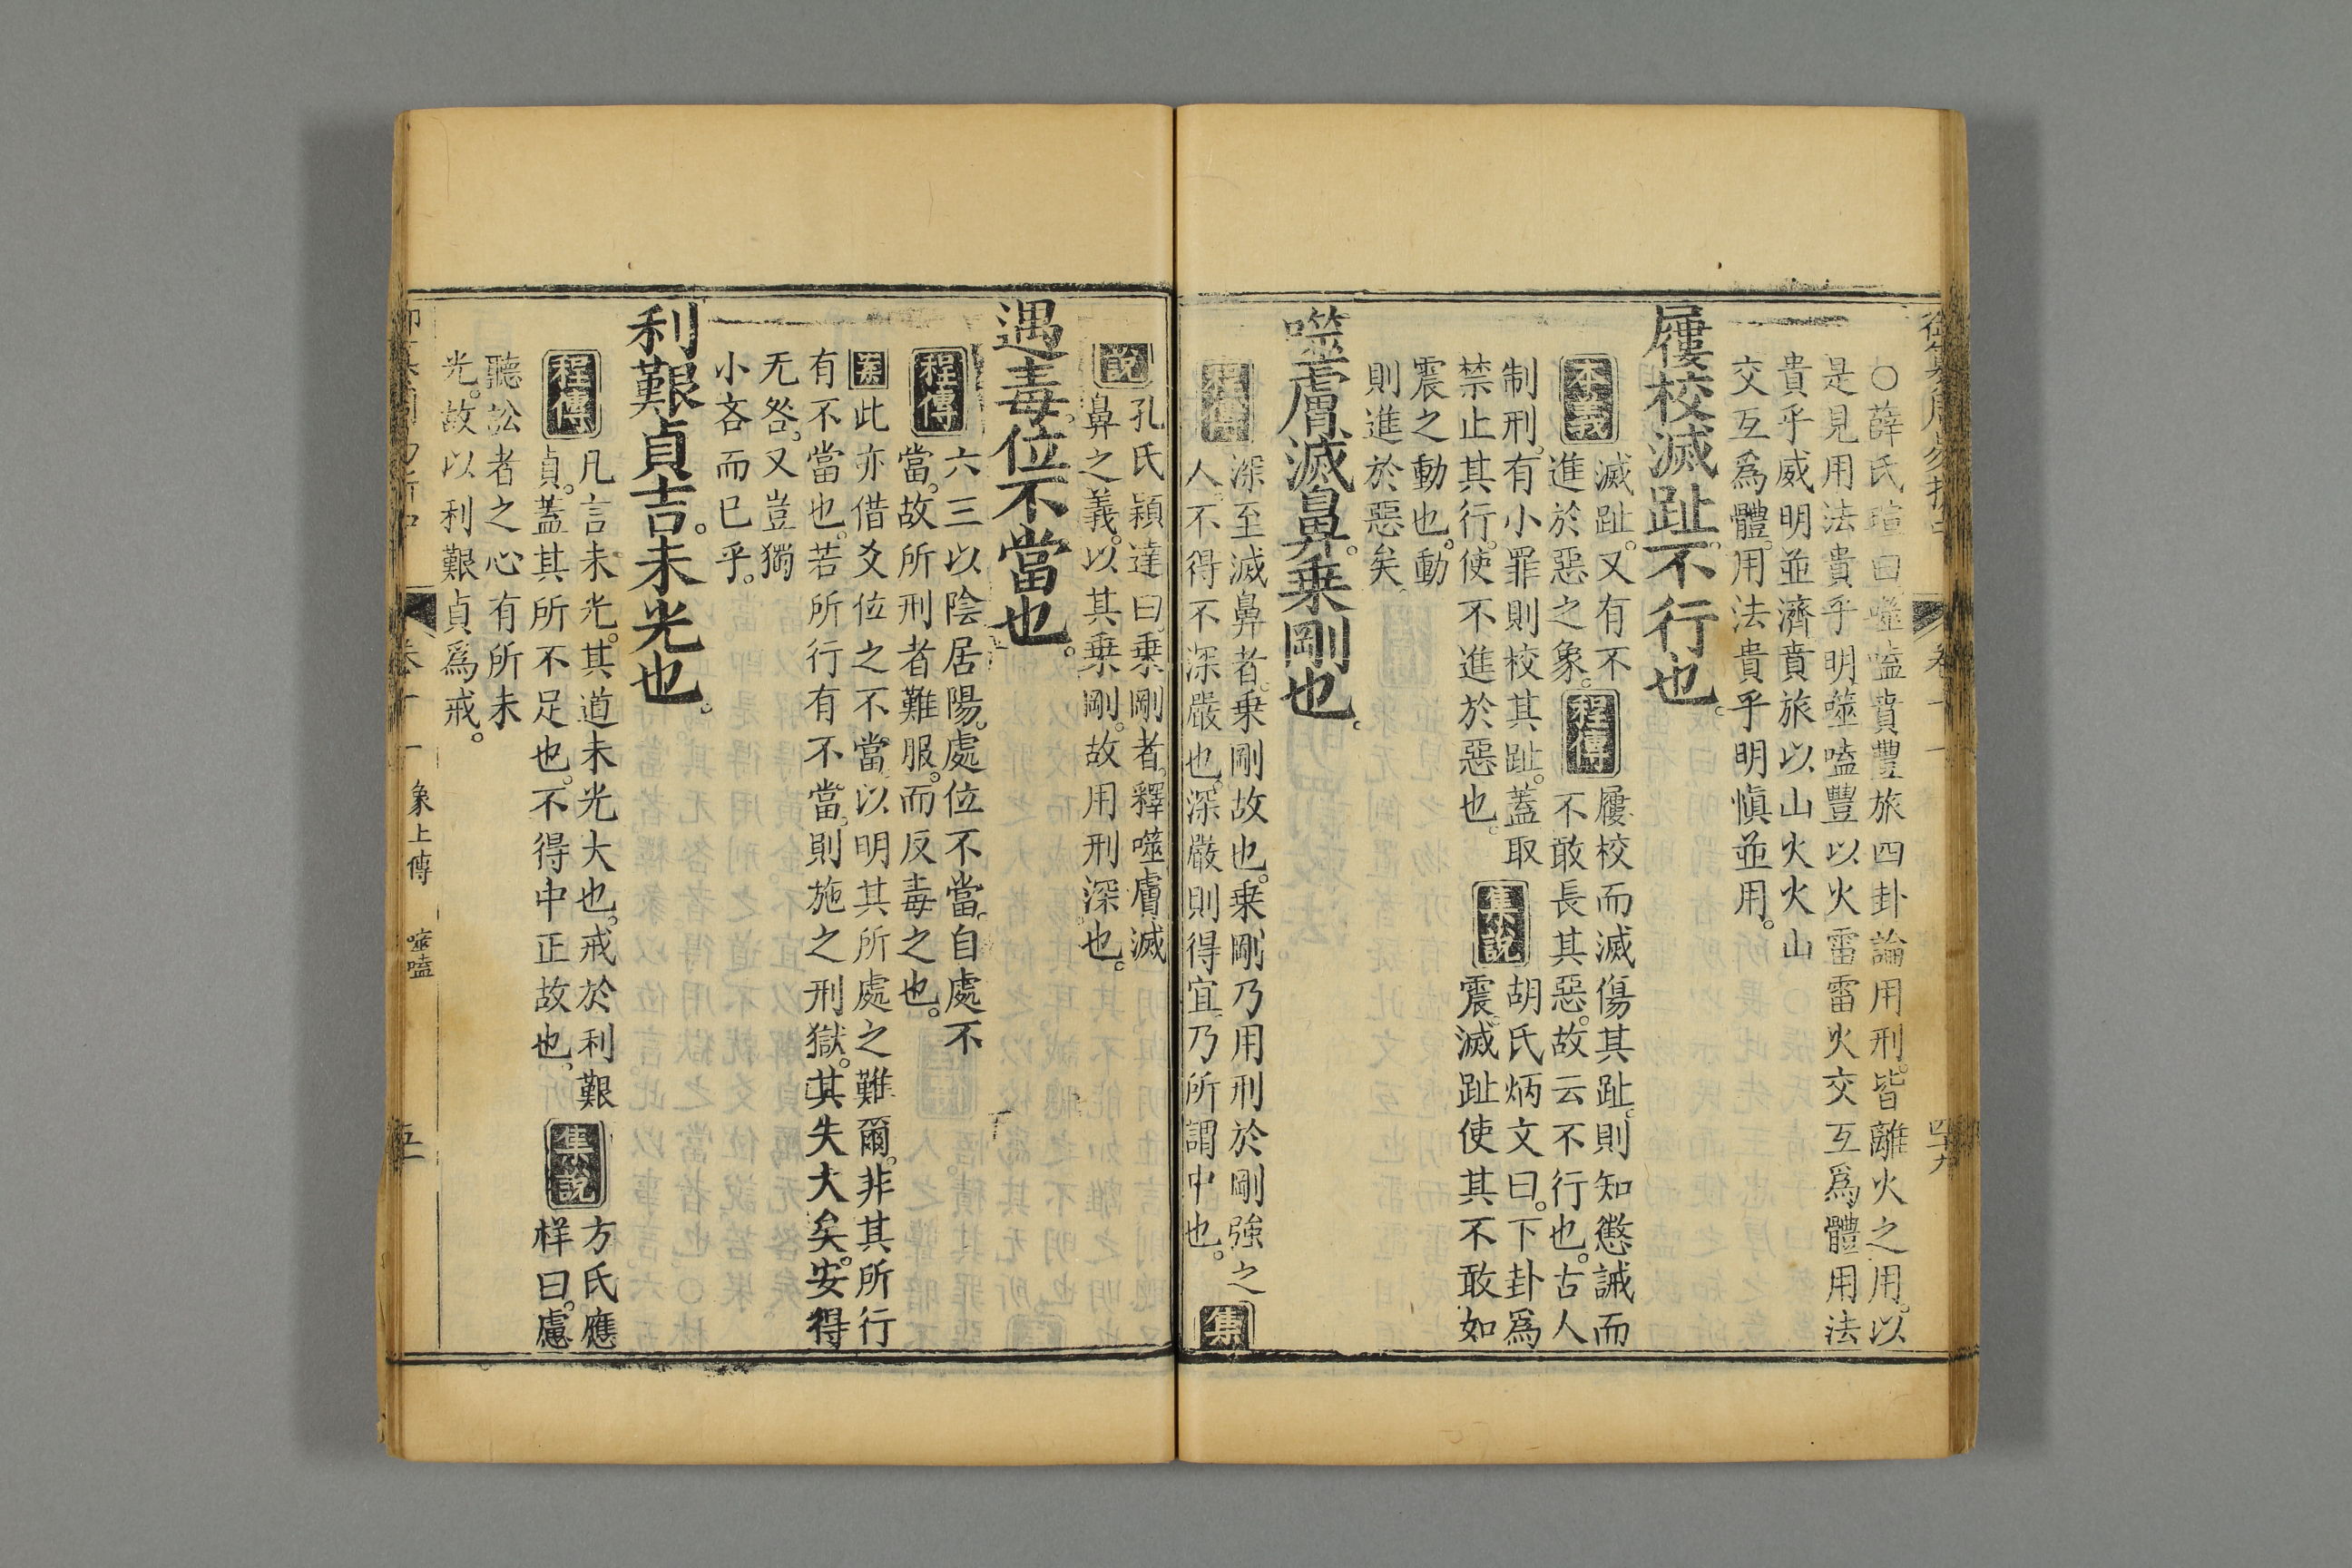 ○薛氏瑄曰噬嗑賁豐旅四卦論用刑。皆離火之用。以
是見用法貴乎明。噬嗑豐以火雷雷火交互爲體用法
貴乎威明並濟賁旅以山火火山
交互爲體。用法貴乎明愼並用。
屨校滅趾。不行也。
本義
滅趾。又有不
進於惡之象。
程傳
屨校而滅傷其趾。則知懲誡而
不敢長其惡。故云不行也。古人
制刑。有小罪則校其趾。蓋取
禁止其行。使不進於惡也。
集說
胡氏炳文曰。下卦爲
震。滅趾使其不敢如
震之動也。動
則進於惡矣
噬膚滅鼻。乗剛也。
程傳
深至滅鼻者。乗剛故也。乗剛乃用刑於剛強之
人。不得不深嚴也。深嚴則得宜。乃所謂中也。
集
說
孔氏穎達曰。乗剛者。釋噬膚滅
鼻之義。以其乗剛。故用刑深也。
遇毒。位不當也。
程傳
六三以陰居陽。處位不當。自處不
當。故所刑者難服。而反毒之也。
案
此亦借爻位之不當。以明其所處之難爾。非其所行
有不當也。若所行有不當。則施之刑獄。其失大矣。安得
无咎。又豈獨
小吝而已乎。
利艱貞吉。未光也。
程傳
凡言未光。其道未光大也。戒於利艱
貞。蓋其所不足也。不得中正故也。
集說
方氏應
样曰。慮
聽訟者之心有所未
光。故以利艱貞爲戒。
卷十一 象上傳 噬嗑